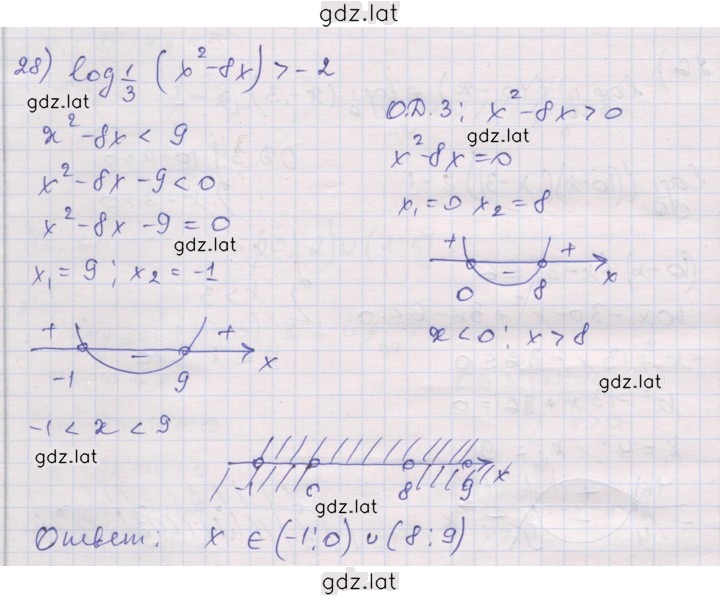 gdz.lat
28) log 1/3 (x² - 8x) > -2
gdz.lat
x² - 8x < 9
x² - 8x - 9 < 0
x² - 8x - 9 = 0
gdz.lat
x₁ = 9; x₂ = -1
+ - + x
-1 9
-1 < x < 9
gdz.lat
О.Д.З; x² - 8x > 0
gdz.lat
x² - 8x = 0
x₁ = 0 x₂ = 8
+ - + x
0 8
x < 0; x > 8
gdz.lat
-1 0 8 9 x
gdz.lat
Ответ: x ∈ (-1; 0) ∪ (8; 9)
gdz.lat